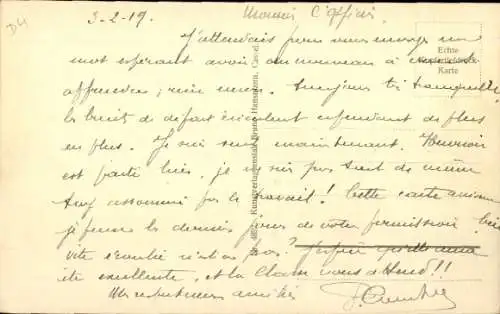 D4
3-2-19. Monsieur l'Officier
J'attendais pour vous envoyer un
mot espérant avoir du nouveau à
Echte
Kupfertiefdruck-
Karte
apprendre; rien encore. Toujours très tranquille
les bruits de départ circulent cependant de plus
en plus. Je suis seul maintenant.
est parti hier, je ne suis pas tout de même
trop assommé par le travail! Cette carte
je pense les derniers jours de votre permission bien
vite n'est ce pas?
été excellente, et la Classe vous attend!!
Mes respectueuses amitiés
Kunstverlagsanstalt Bruno Hansmann, Cassel